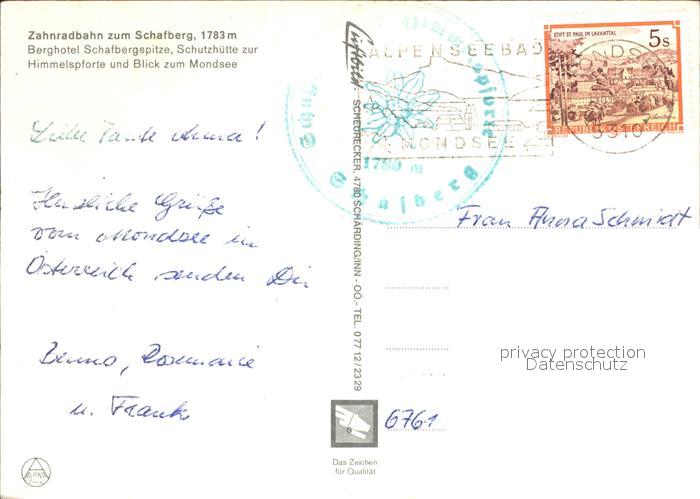 Zahnradbahn zum Schafberg, 1783 m
Berghotel Schafbergspitze, Schutzhütte zur
Himmelspforte und Blick zum Mondsee
Liebe Tante Anna!
Herzliche Grüße
vom Mondsee in
Österreich senden Dir
Benno, Rosmarie
u. Frank
ALPINA
Luftbild
SCHEURECKER, 4780 SCHÄRDING/INN - OÖ. - TEL. 0 77 12 / 23 29
Himmelspforte
1780 m
Schafberg
ALPENSEEBAD
MONDSEE
STIFT ST. PAUL IM LAVANTTAL
5s
REPUBLIK ÖSTERREICH
Frau Anna Schmidt
privacy protection
Datenschutz
6761
Das Zeichen
für Qualität